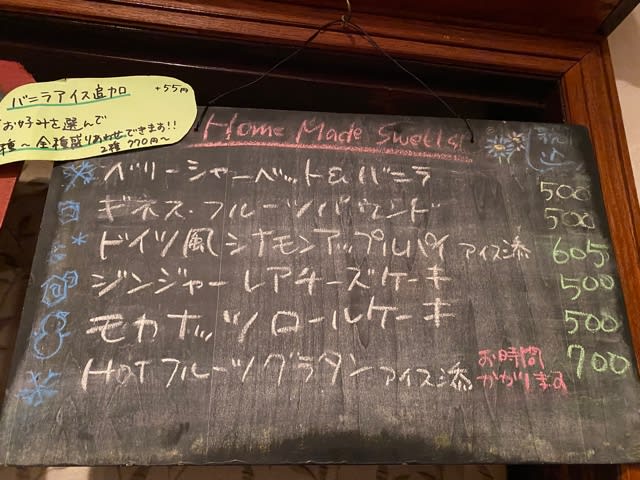 バニラアイス追加 +55円
お好みを選んで
種~全種盛りあわせできます!!
2種 770円~
Home Made Sweets! 税込
ベリーシャーベット&バニラ 500
ギネス・フルーツパウンド 500
ドイツ風シナモンアップルパイ アイス添 605
ジンジャーレアチーズケーキ 500
モカナッツロールケーキ 500
HOTフルーツグラタン アイス添 お時間かかります 700